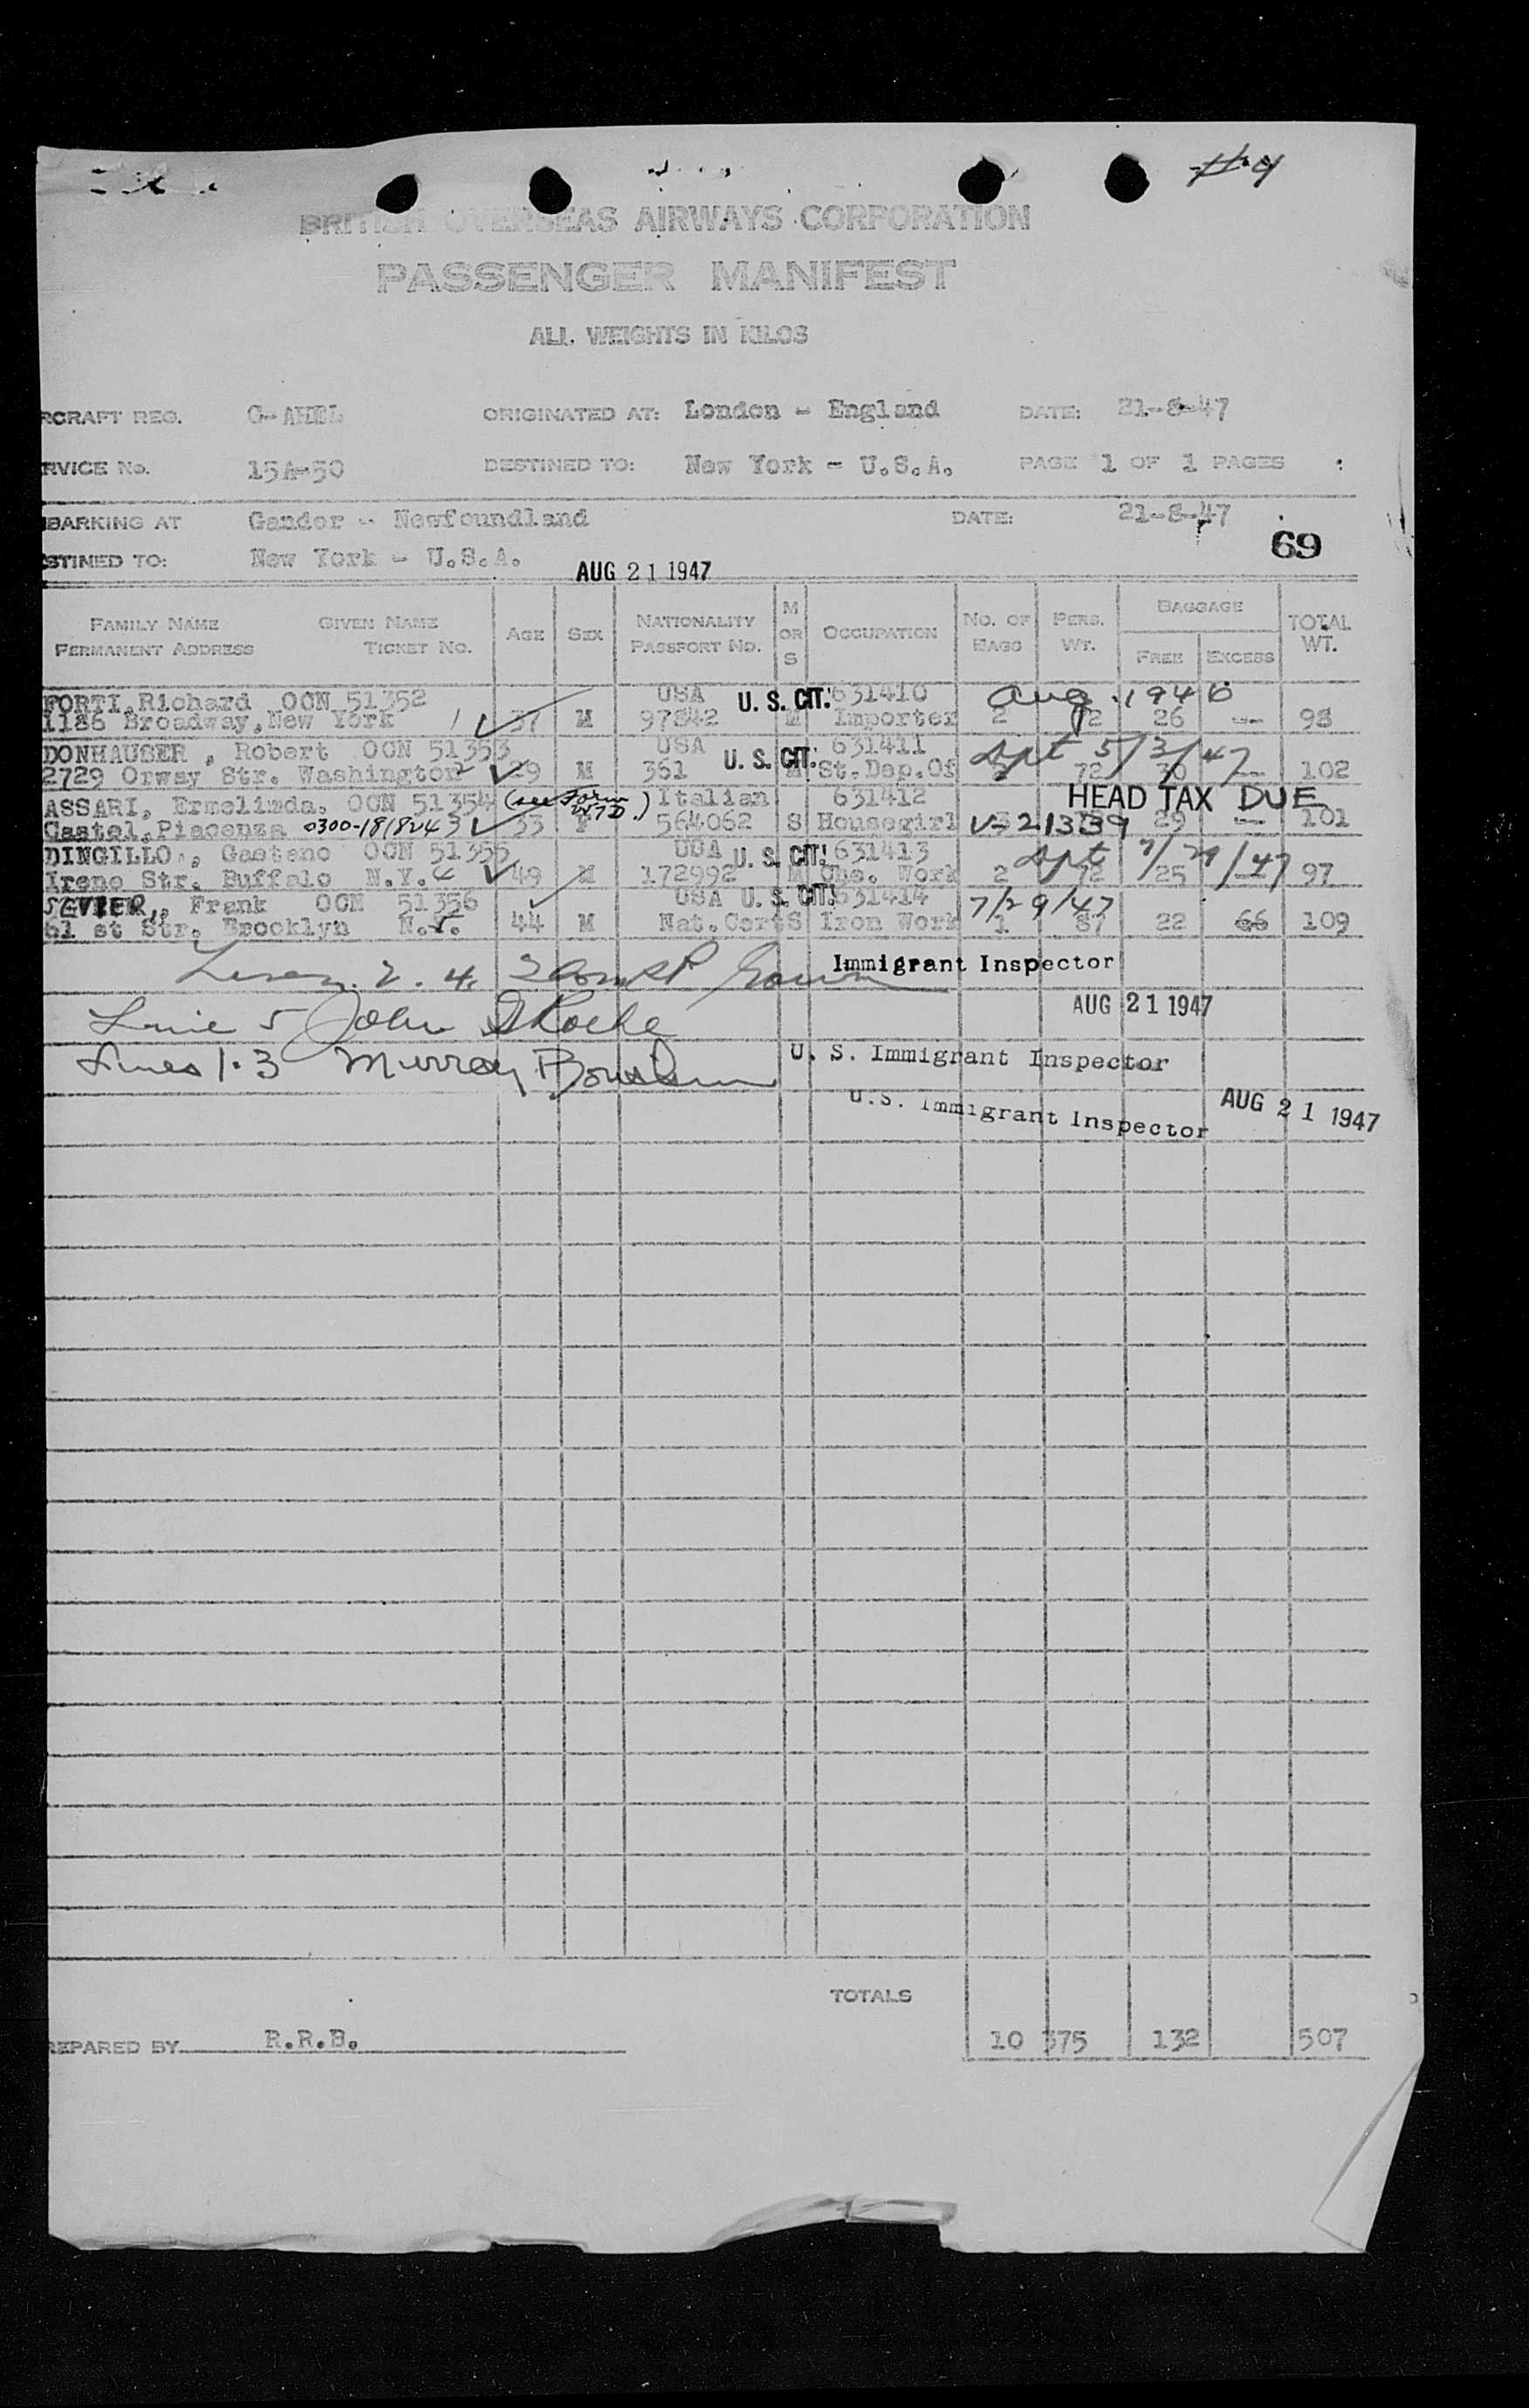 #4
BRITISH OVERSEAS AIRWAYS CORPORATION
PASSENGER MANIFEST
ALL WEIGHTS IN KILOS
RCRAFT REG. G-AHEL ORIGINATED AT: London - England DATE: 21-8-47
RVICE No. 15A-50 DESTINED TO: New York - U.S.A. PAGE 1 OF 1 PAGES
BARKING AT Gander - Newfoundland DATE: 21-8-47
69
STINED TO: New York - U.S.A. AUG 21 1947
FAMILY NAME GIVEN NAME AGE SEX NATIONALITY M OR S OCCUPATION NO. OF BAGS PERS. WT. BAGGAGE TOTAL WT.
PERMANENT ADDRESS TICKET NO. PASSPORT NO. FREE EXCESS
FORTI, Richard OCN 51352 USA U. S. CIT. 631410 Aug. 1946
1186 Broadway, New York 1 37 M 97842 M Importer 2 72 26 -- 98
DONHAUSER, Robert OCN 51353 USA U. S. CIT. 631411 Dept 5/3/47
2729 Orway Str. Washington 2 29 M 361 M St.Dep.Of 72 30 -- 102
ASSARI, Ermelinda. OCN 51354 (see Form Italian 631412 HEAD TAX DUE
Castel, Piacenza 0300-181824 3 33 F 564062 S Housegirl V-21339 29 -- 101
DINGILLO, Gaeteno OCN 51355 USA U. S. CIT. 631413 Dept 7/29/47
Irene Str. Buffalo N.Y. 4 49 M 172992 M Ohs. Work 2 72 25 97
SEVIER, Frank OCN 51356 USA U. S. CIT. 631414 7/29/47
61 st Str. Brooklyn N.Y. 44 M Nat.Cert S Iron Work 1 87 22 66 109
2. 4. Immigrant Inspector
AUG 21 1947
Line 5 John Roche
Lines 1-3 Murray U. S. Immigrant Inspector
U.S. Immigrant Inspector AUG 21 1947
TOTALS
REPARED BY R.R.B. 10 375 132 507